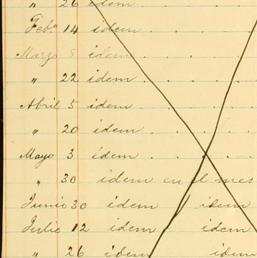 " 26 idem . . .
Feb.º 14 idem . . . .
Marzo 8 idem . . . .
" 22 idem . . . .
Abril 5 idem . . . .
" 20 idem . . . .
Mayo 3 idem . . . .
" 30 idem en el mes
Junio 30 idem idem
Julio 12 idem idem
" 26 idem idem